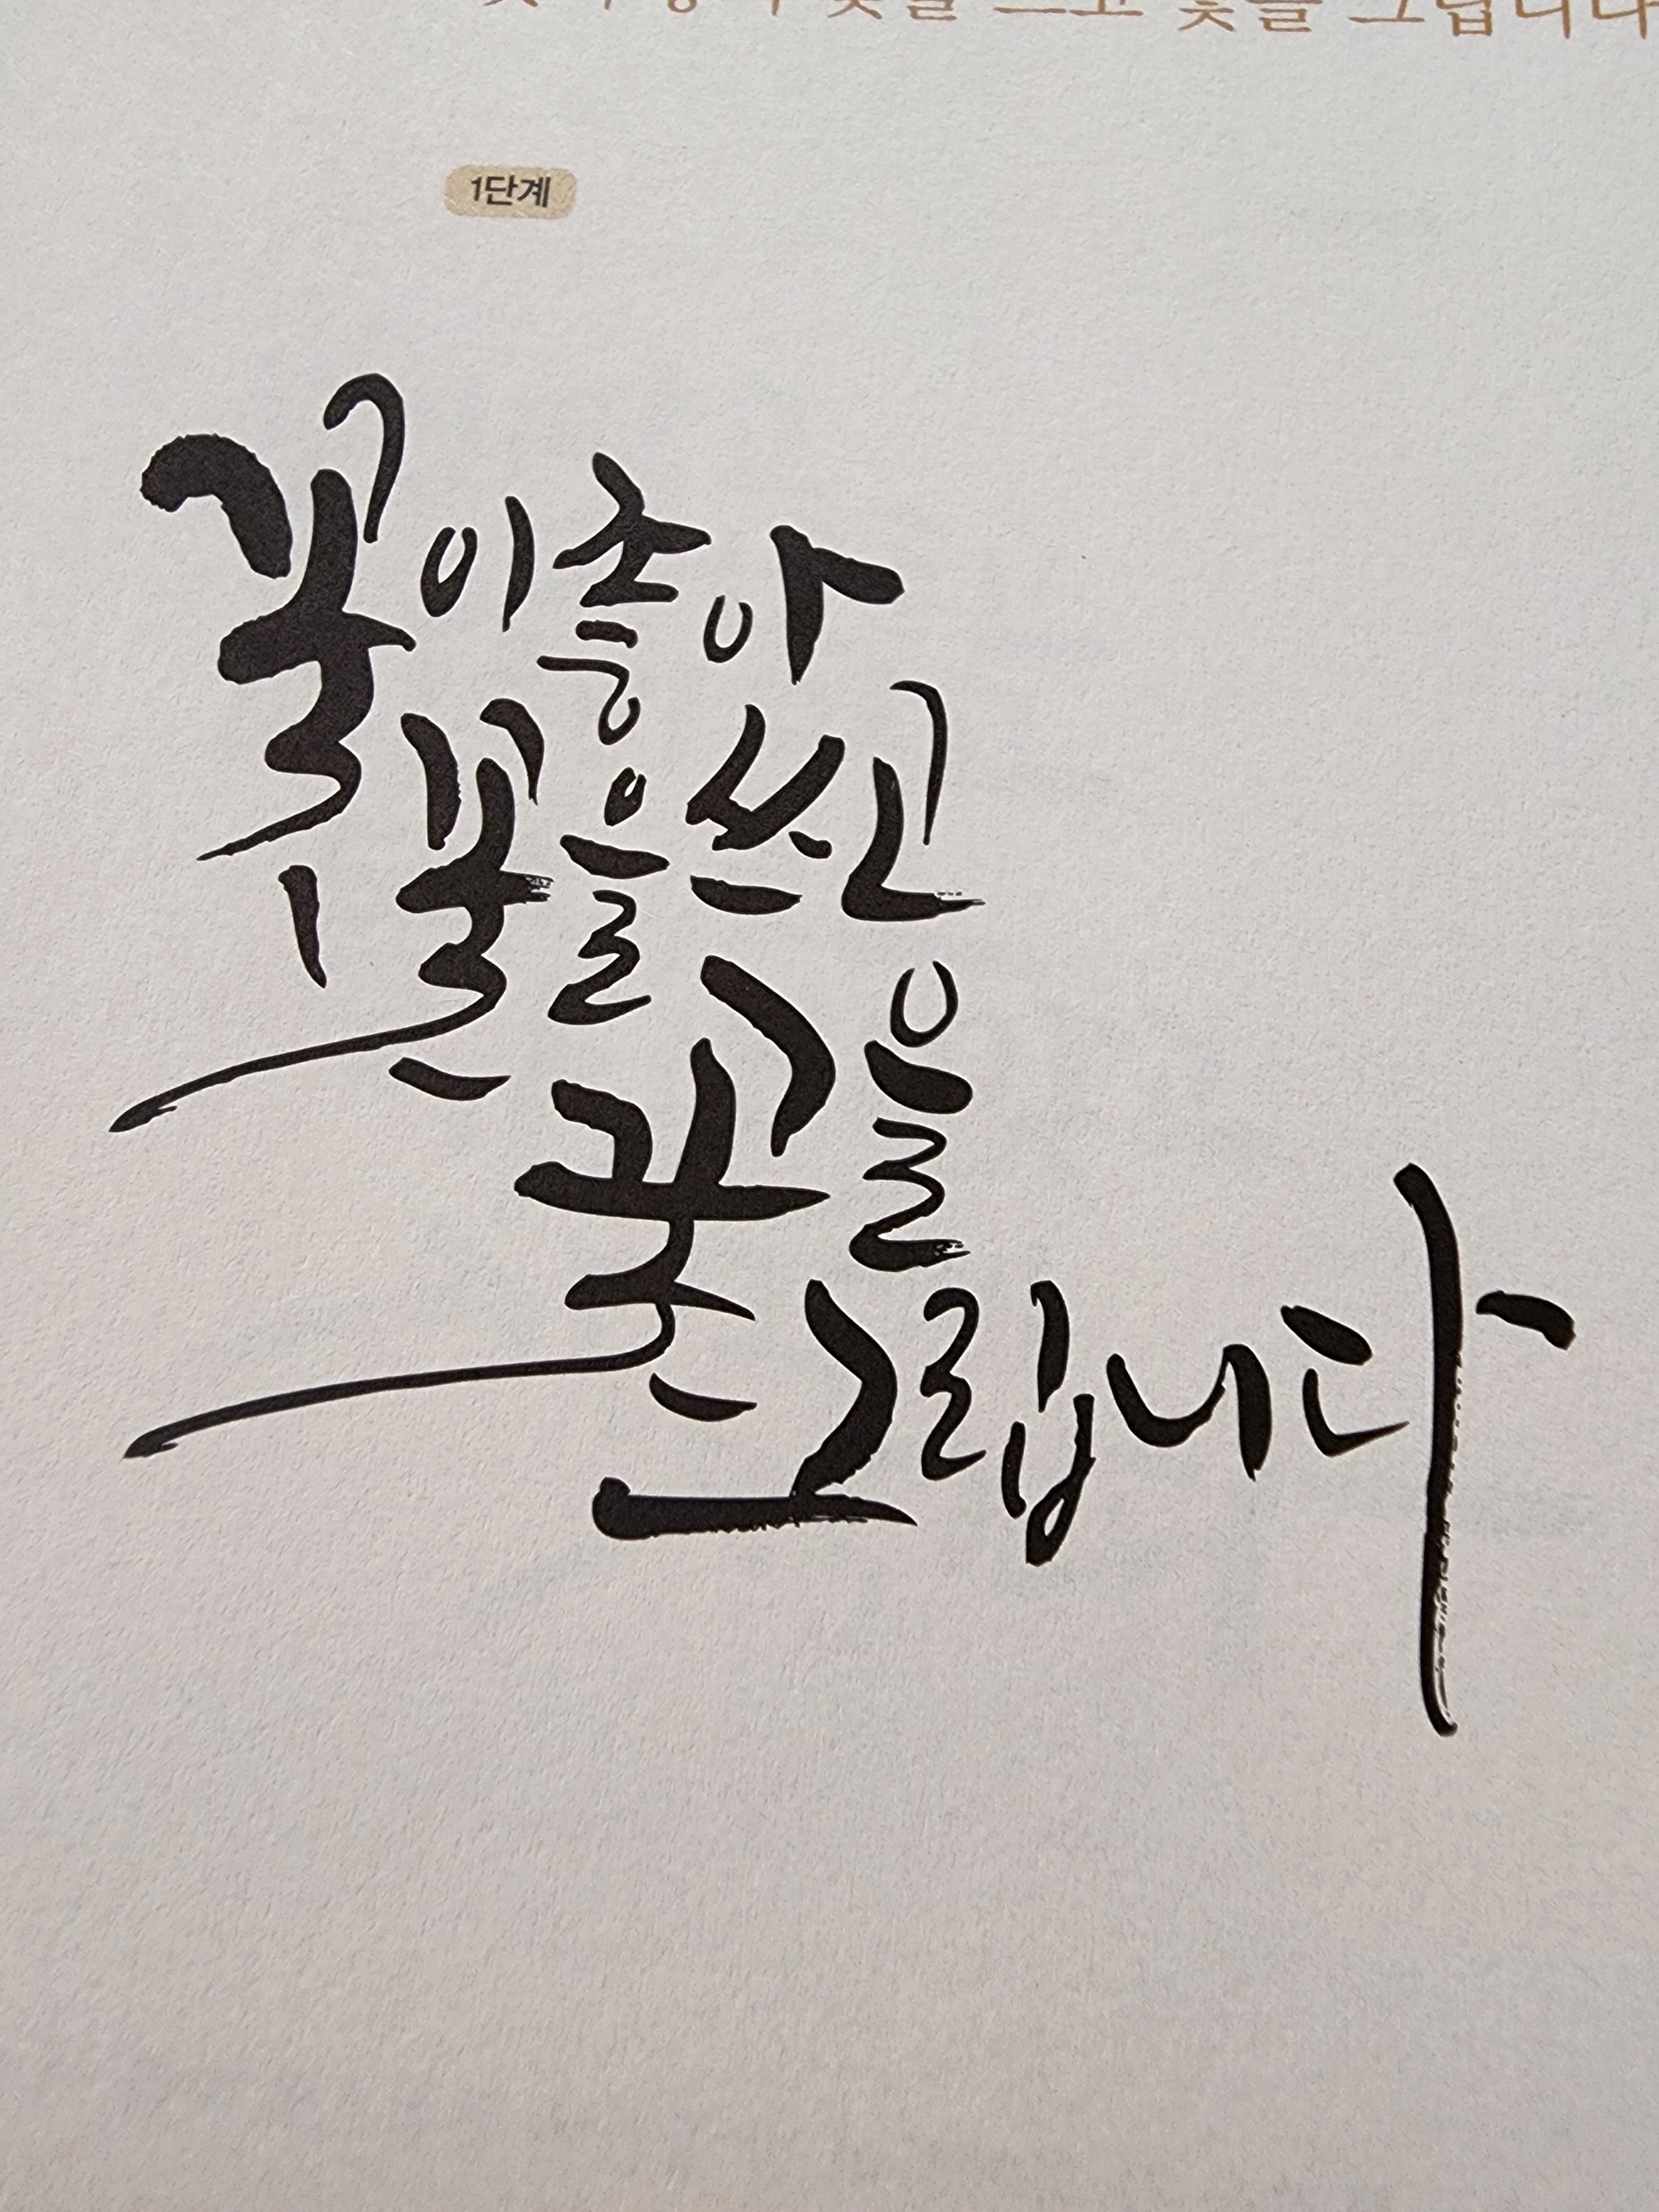 꽃이 좋아 꽃을 쓰고 꽃을 그립니다
1단계
꽃이 좋아
꽃을 쓰고
꽃을
그립니다